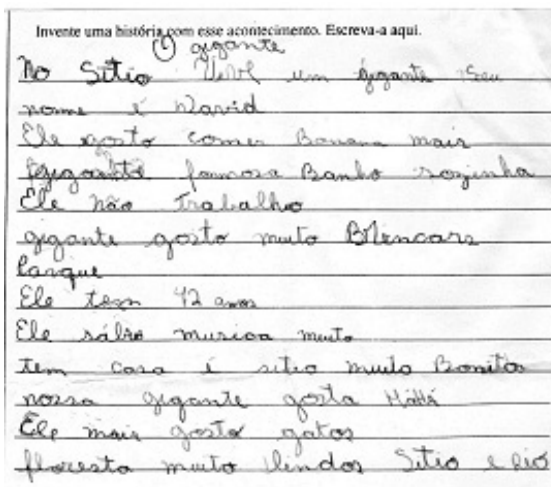 Invente uma história com esse acontecimento. Escreva-a aqui.
O gigante
No Sítio um gigante Seu
nome é David
Ele gosto comer Banana mais
Banho sozinha
Ele não Trabalho
gigante gosto muito
Parque
Ele tem 12 anos
Ele musica muito
tem casa é sitio muito Bonitos
nossa gigante gosta
Ele mais gosto gatos
floresta muito lindos Sitio e Rio